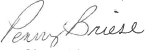 Penny Briese